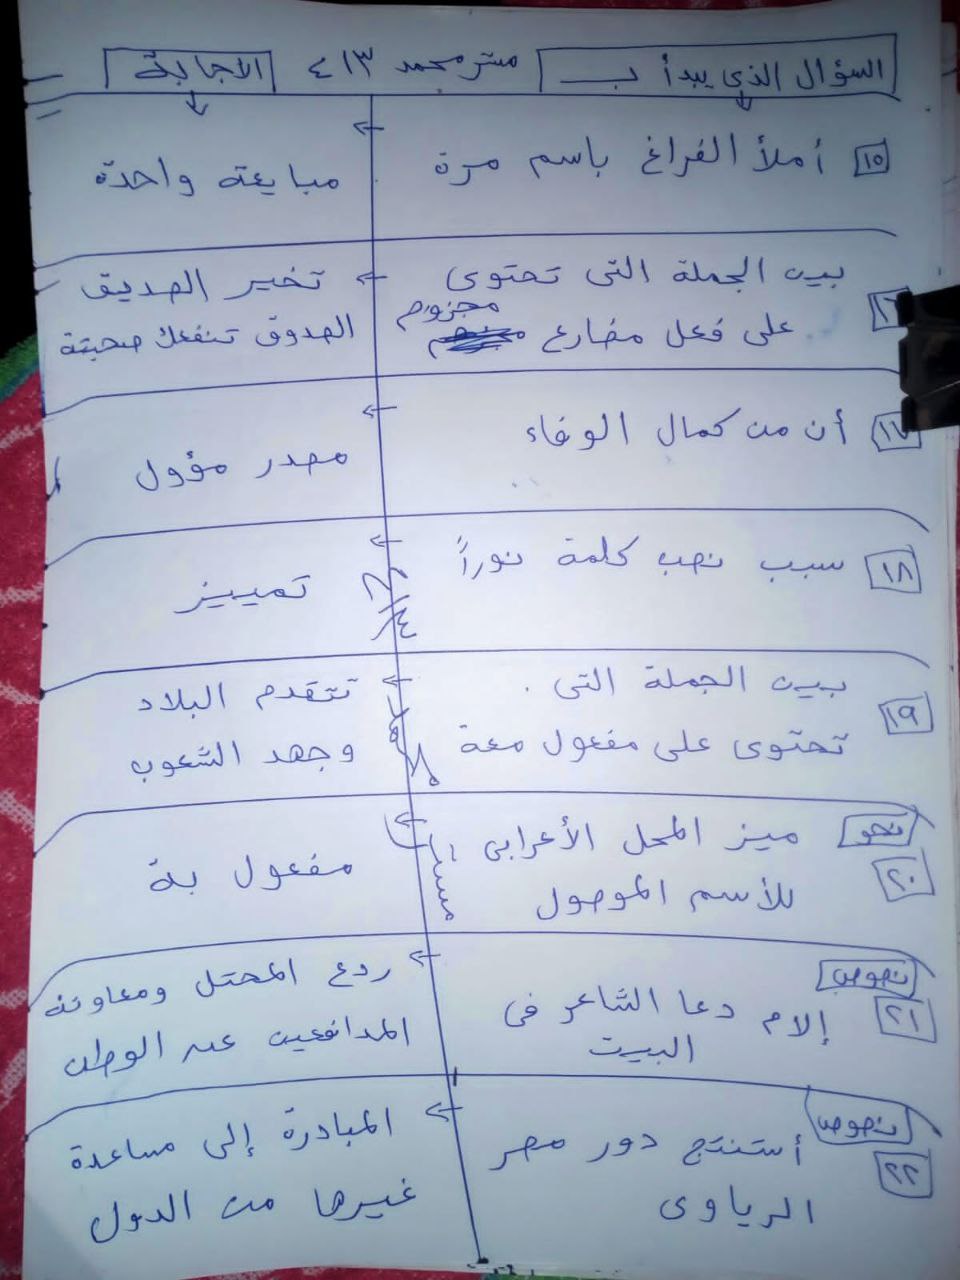 السؤال الذي يبدأ بـ
مستر محمد ٤١٣
الاجابة
١٥ أملأ الفراغ باسم مرة
مبايعته واحدة
بين الجملة التى تحتوى
على فعل مضارع مجزوم
تخير الصديق
الصدوق تنفعك صحبتة
١٧ أن من كمال الوفاء
مصدر مؤول
١٨ سبب نصب كلمة نوراً
تمييز
١٩ بين الجملة التى
تحتوى على مفعول معة
تتقدم البلاد
وجهد الشعوب
نحو
٢٠ ميز المحل الأعرابى
للأسم الموصول
مفعول بة
نصوص
٢١ إلام دعا الشاعر فى
البيت
ردع المحتل ومعاونة
المدافعين عن الوطن
نصوص
٢٢ أستنتج دور مصر
الرياوى
المبادرة إلى مساعدة
غيرها من الدول